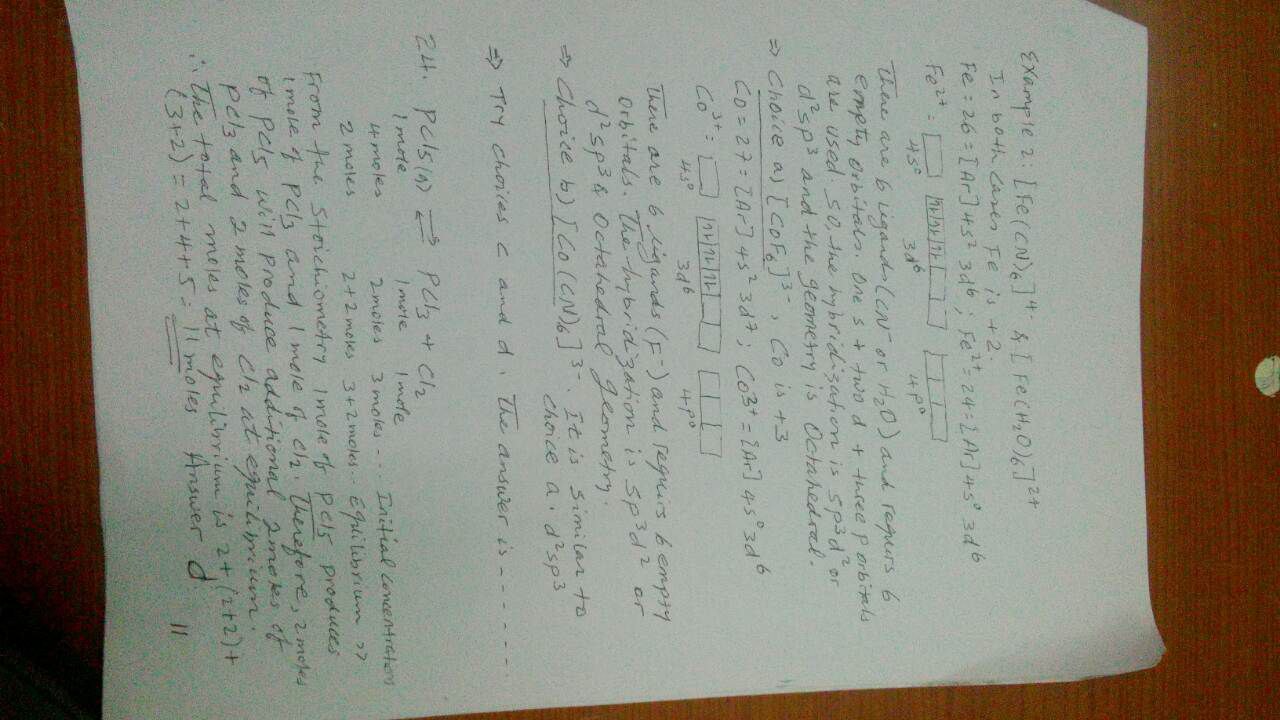 Example 2: [Fe(CN)6]4- & [Fe(H2O)6]2+
In both cases Fe is +2.
Fe = 26 = [Ar] 4s2 3d6; Fe2+ = 24 = [Ar] 4s0 3d6
Fe2+ :
4s0 3d6 4p0
There are 6 ligands (CN- or H2O) and requirs 6
empty orbitals. One s + two d + three p orbitals
are used. So, the hybridization is sp3d2 or
d2sp3 and the geometry is Octahedral.
⇒ Choice a) [CoF6]3-, Co is +3
Co = 27 = [Ar] 4s2 3d7; Co3+ = [Ar] 4s0 3d6
Co3+ :
4s0 3d6 4p0
There are 6 ligands (F-) and requirs 6 empty
orbitals. The hybridization is sp3d2 or
d2sp3 & Octahedral geometry.
⇒ Choice b) [Co(CN)6]3-. It is similar to
choice a. d2sp3
⇒ Try choices c and d. The answer is - - - - - - -
24. PCl5(s) ⇌ PCl3 + Cl2
1mole 1mole 1mole
4moles 2moles 3moles ... Initial concentration
2moles 2+2moles 3+2moles .. Equilibrium >>
From the stoichiometry 1mole of PCl5 produces
1mole of PCl3 and 1mole of Cl2. Therefore, 2moles
of PCl5 will produce additional 2moles of
PCl3 and 2moles of Cl2 at equilibrium.
∴ The total moles at equilibrium is 2 + (2+2) +
(3+2) = 2+4+5 = 11 moles Answer d
11